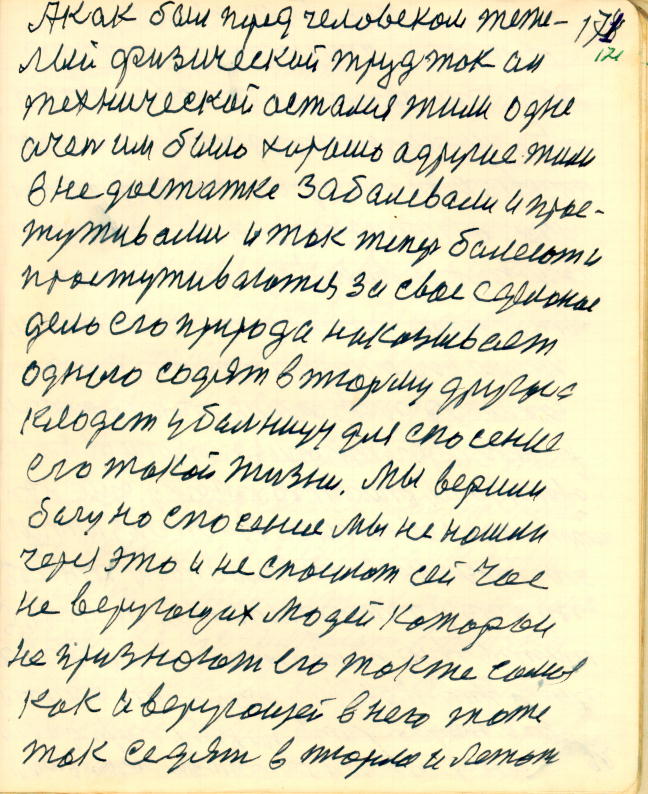 А как был пред человеком тяже- 171
лый физической труд так ои 121
технической остался жили одне
очен им было хорошо а другие жили
в не достатке забалевали и прос-
туживали и так тепер балеют и
простуживаются за свое сделоное
дело его природа наказывает
одного содят в тюрму другого
кладет у балницу для спосение
его такой жизни. Мы верили
богу но спосение мы не нашли
через это и не споишот сей час
не верующих людей которыи
не признают его также самое
как и верующей в него тоже
так седят в тюрме и лежат